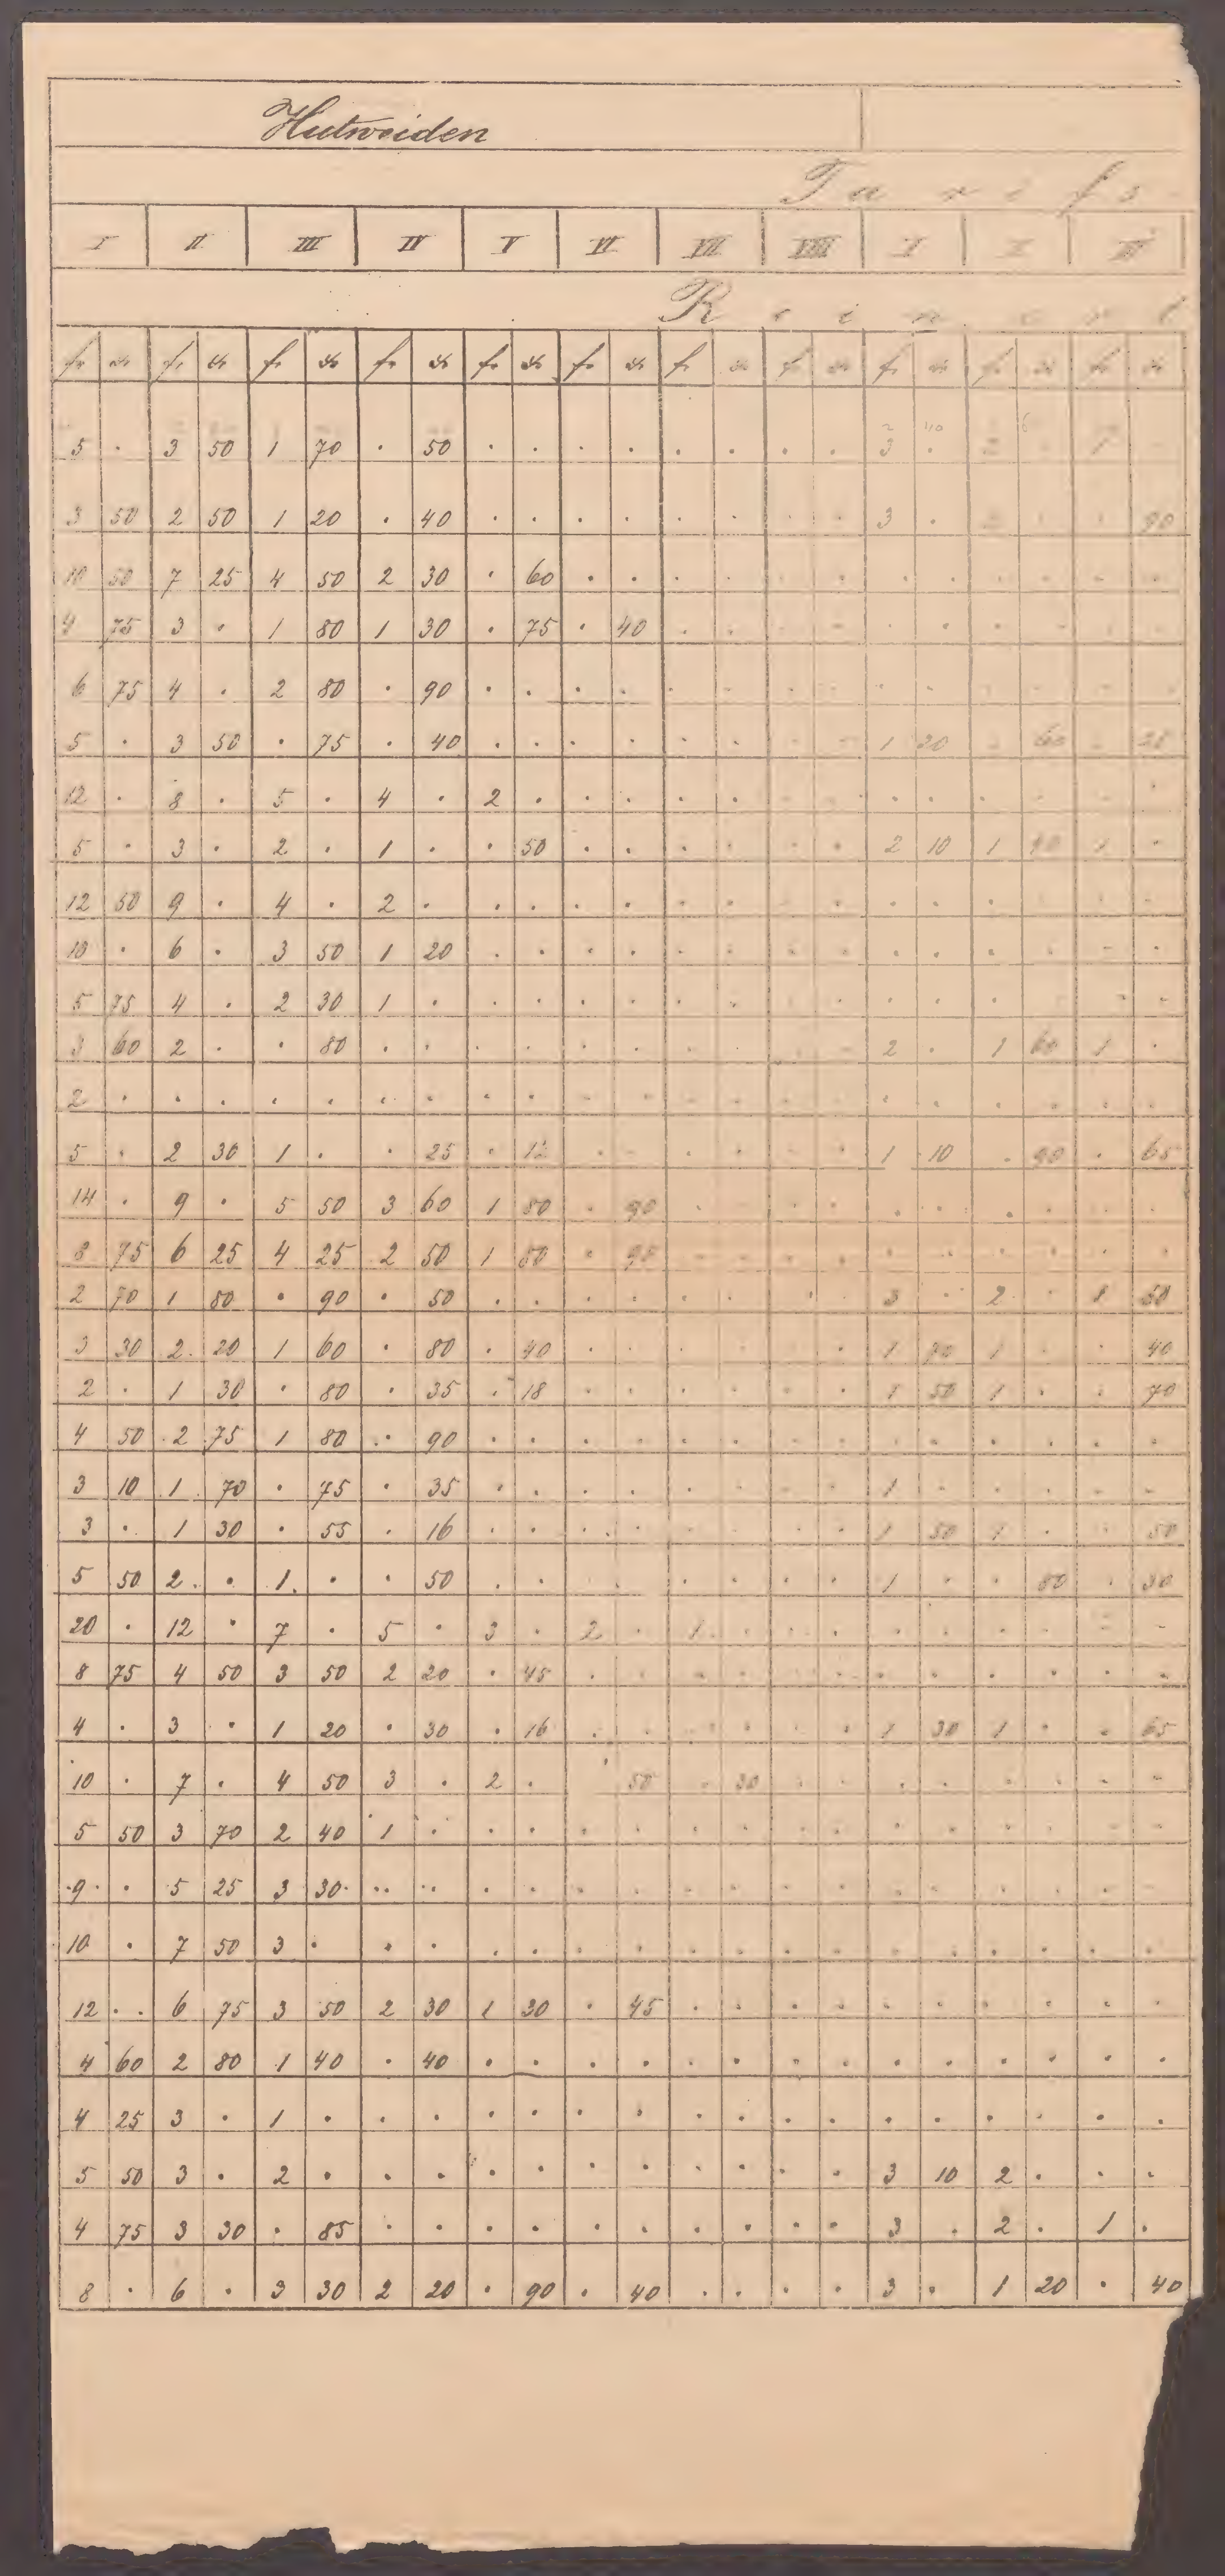 Hutweiden
Tarifs
I II III IV V VI VII VIII I II III
Reinert
fr kr fr kr fr kr fr kr fr kr fr kr fr kr fr kr fr kr fr kr fr kr
5 . 3 50 1 70 . 50 . . . . . . . . 3 . 2 . 1
3 50 2 50 1 20 . 40 . . . . . . . . 3 . 2 . . 90
10 50 7 25 4 50 2 30 . 60 . . . . . . . . . . . .
4 75 3 . 1 80 1 30 . 75 . 40 . . . . . . . . . .
6 75 4 . 2 80 . 90 . . . . . . . . . . . . . .
5 . 3 50 . 75 . 40 . . . . . . . . 1 20 . 60 . 25
12 . 8 . 5 . 4 . 2 . . . . . . . . . . . . .
5 . 3 . 2 . 1 . . 50 . . . . . . 2 10 1 90 1 .
12 50 9 . 4 . 2 . . . . . . . . . . . . . . .
10 . 6 . 3 50 1 20 . . . . . . . . . . . . . .
5 75 4 . 2 30 1 . . . . . . . . . . . . . . .
3 60 2 . . 80 . . . . . . . . . . 2 . 1 60 1 .
2 . . . . . . . . . . . . . . . . . . . . .
5 . 2 30 1 . . 25 . 12 . . . . . . 1 10 . 90 . 65
14 . 9 . 5 50 3 60 1 80 . 90 . . . . . . . . . .
8 75 6 25 4 25 2 50 1 50 . 95 . . . . . . . . . .
2 70 1 80 . 90 . 50 . . . . . . . . 3 . 2 . 1 50
3 30 2 20 1 60 . 80 . 40 . . . . . . 1 70 1 . . 40
2 . 1 30 . 80 . 35 . 18 . . . . . . 1 50 1 . . 70
4 50 2 75 1 80 . 90 . . . . . . . . . . . . . .
3 10 1 70 . 75 . 35 . . . . . . . . 1 . . . . .
3 . 1 30 . 55 . 16 . . . . . . . . 1 50 1 . . 50
5 50 2 . 1 . . 50 . . . . . . . . 1 . . 80 . 30
20 . 12 . 7 . 5 . 3 . 2 . 1 . . . . . . . . .
8 75 4 50 3 50 2 20 . 45 . . . . . . . . . . . .
4 . 3 . 1 20 . 30 . 16 . . . . . . 1 30 1 . . 65
10 . 7 . 4 50 3 . 2 . . 50 . 30 . . . . . . . .
5 50 3 70 2 40 1 . . . . . . . . . . . . . . .
9 . 5 25 3 30 . . . . . . . . . . . . . . . .
10 . 7 50 3 . . . . . . . . . . . . . . . . .
12 . 6 75 3 50 2 30 1 30 . 45 . . . . . . . . . .
4 60 2 80 1 40 . 40 . . . . . . . . . . . . . .
4 25 3 . 1 . . . . . . . . . . . . . . . . .
5 50 3 . 2 . . . . . . . . . . . 3 10 2 . . .
4 75 3 30 . 85 . . . . . . . . . . 3 . 2 . 1 .
8 . 6 . 3 30 2 20 . 90 . 40 . . . . 3 . 1 20 . 40